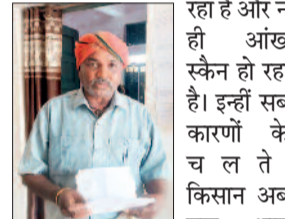 रहा है और न
ही आंख
स्कैन हो रह
है। इन्हीं सब
कारणों के
च ल ते
किसान अब